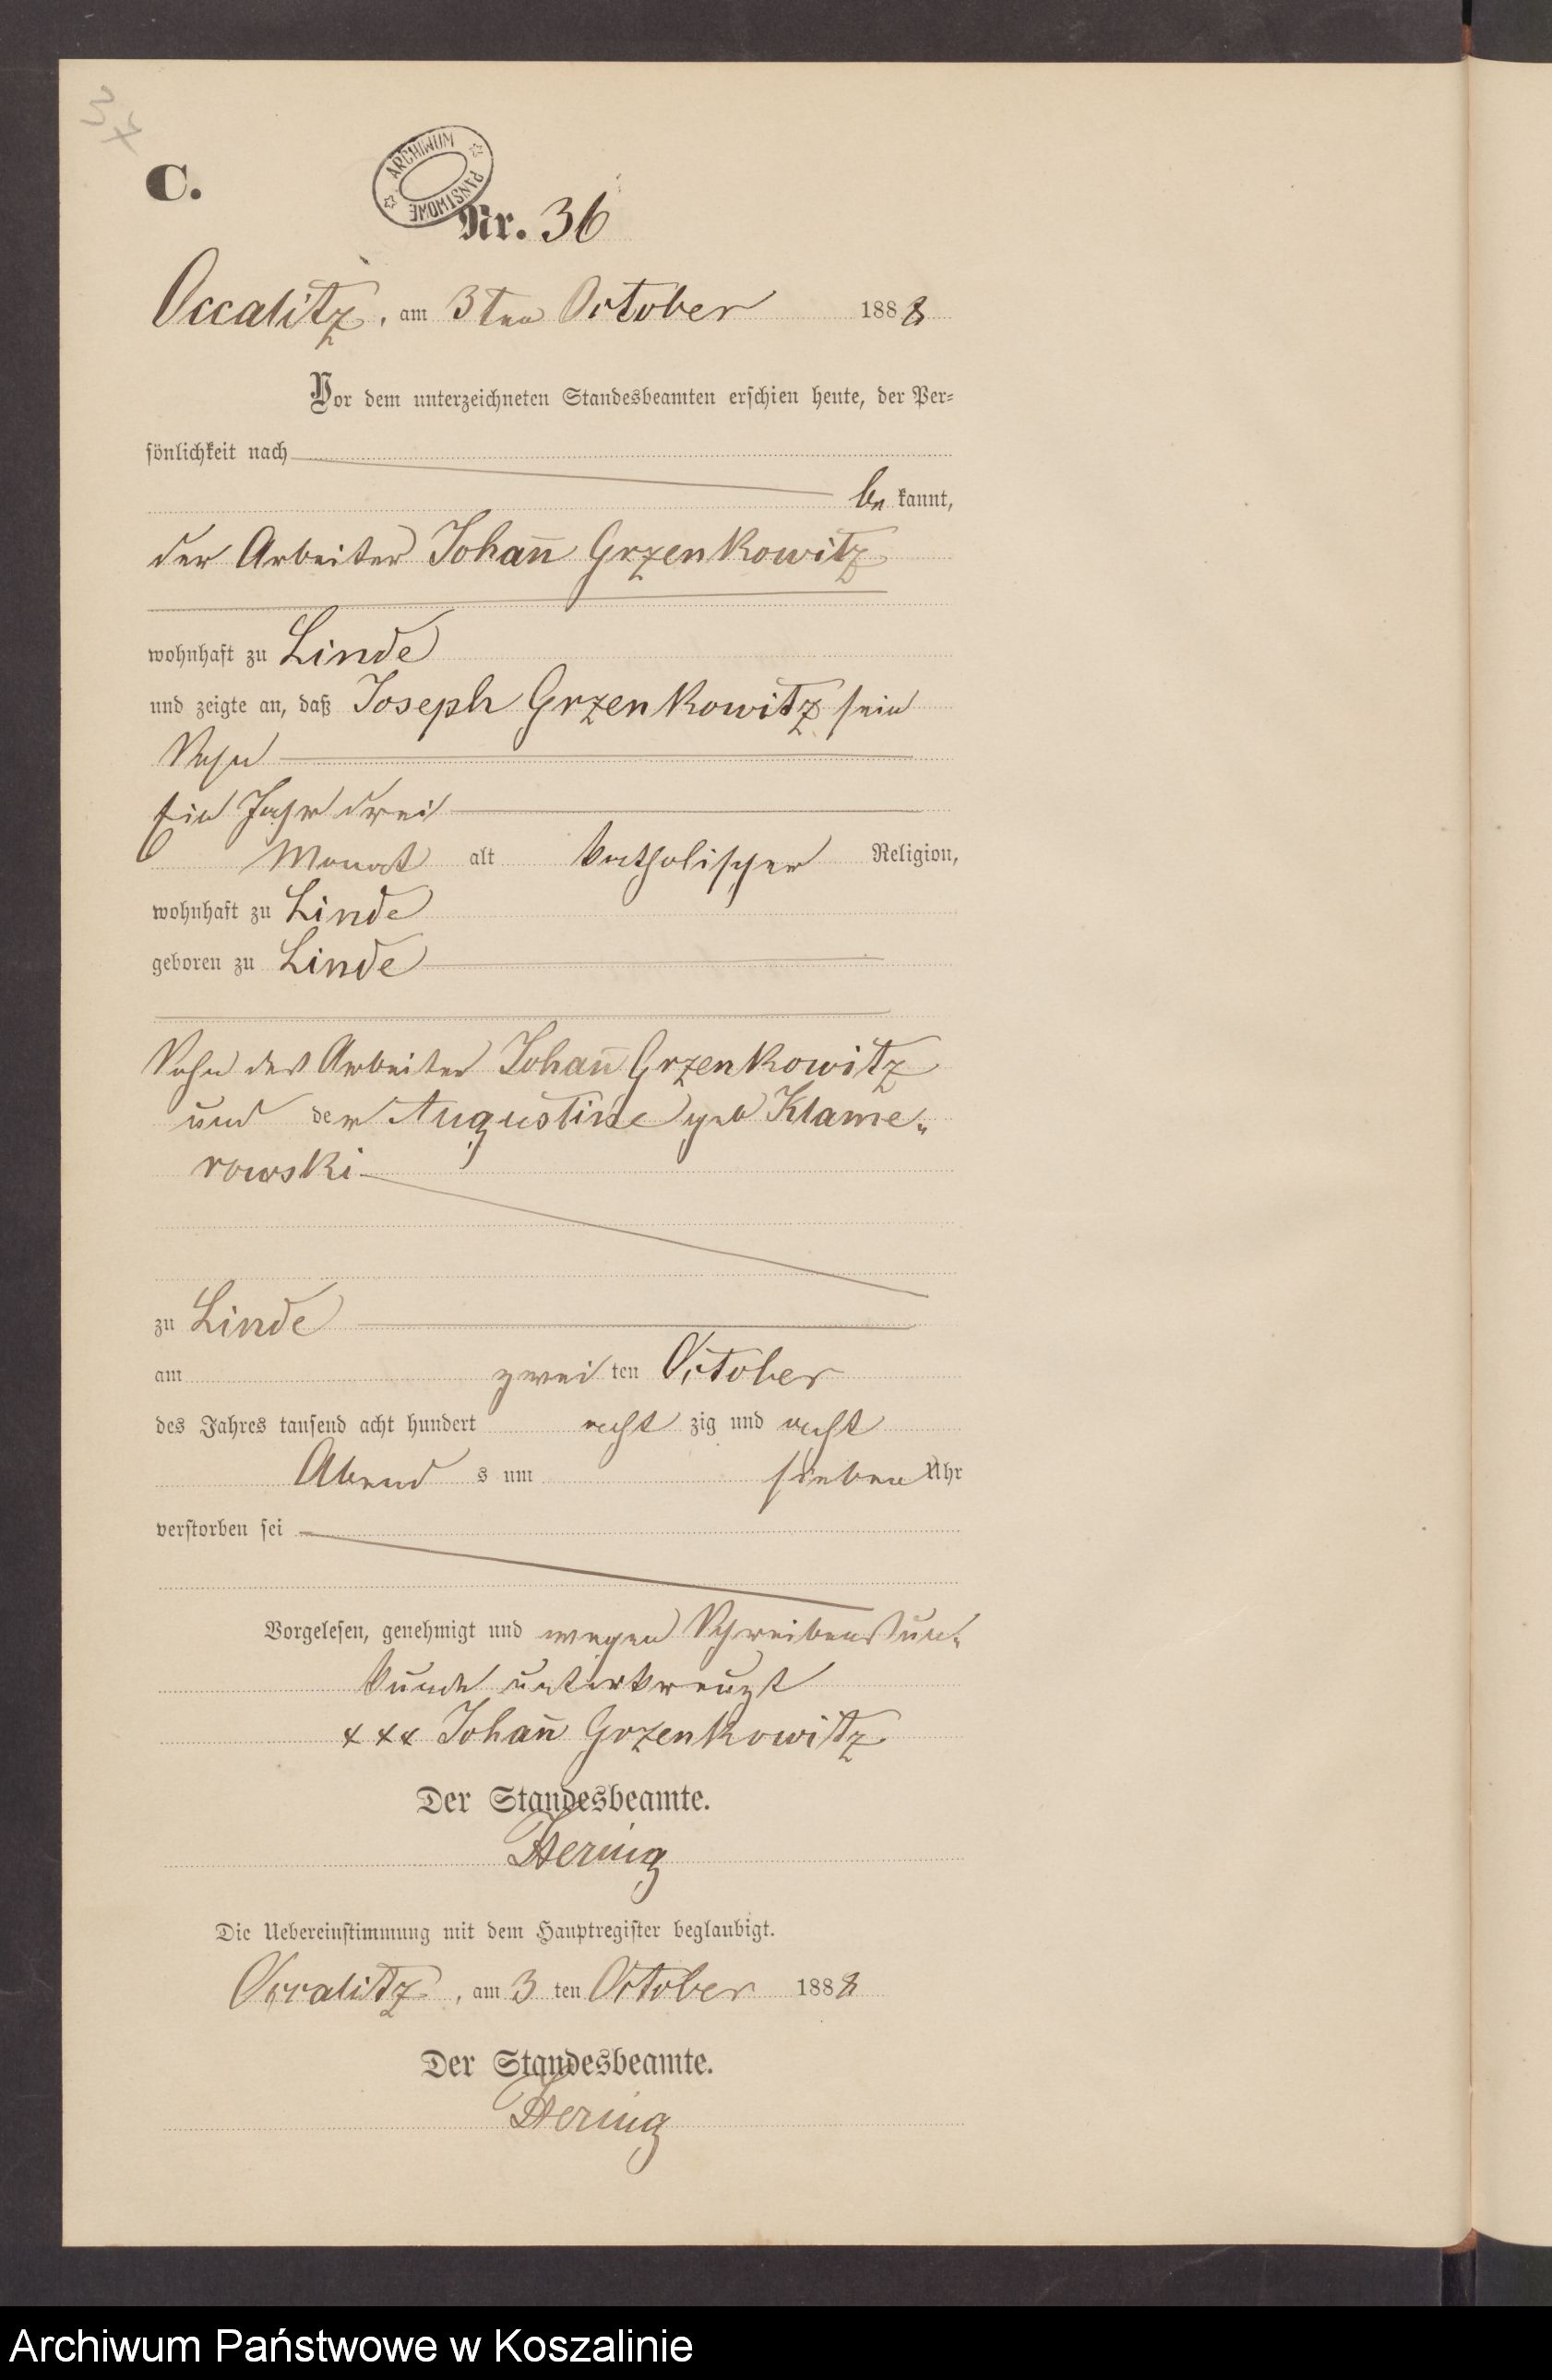 37
C.
ARCHIWUM PAŃSTWOWE
Nr. 36
Occalitz, am 3ten October 1888
Vor dem unterzeichneten Standesbeamten erschien heute, der Per=
sönlichkeit nach
be kannt,
der Arbeiter Johan̄ Grzenkowitz
wohnhaft zu Linde
und zeigte an, daß Joseph Grzenkowitz sein
Sohn
ein Jahr drei
Monat alt katholischer Religion,
wohnhaft zu Linde
geboren zu Linde
Sohn des Arbeiter Johan̄ Grzenkowitz
und der Augustine geb Klame=
rowski
zu Linde
am zwei ten October
des Jahres tausend acht hundert acht zig und acht
Abend s um sieben Uhr
verstorben sei
Vorgelesen, genehmigt und wegen Schreibensun=
kunde unterkreuzt
xxx Johan̄ Grzenkowitz
Der Standesbeamte.
Hering
Die Uebereinstimmung mit dem Hauptregister beglaubigt.
Occalitz, am 3 ten October 1888
Der Standesbeamte.
Hering
Archiwum Państwowe w Koszalinie